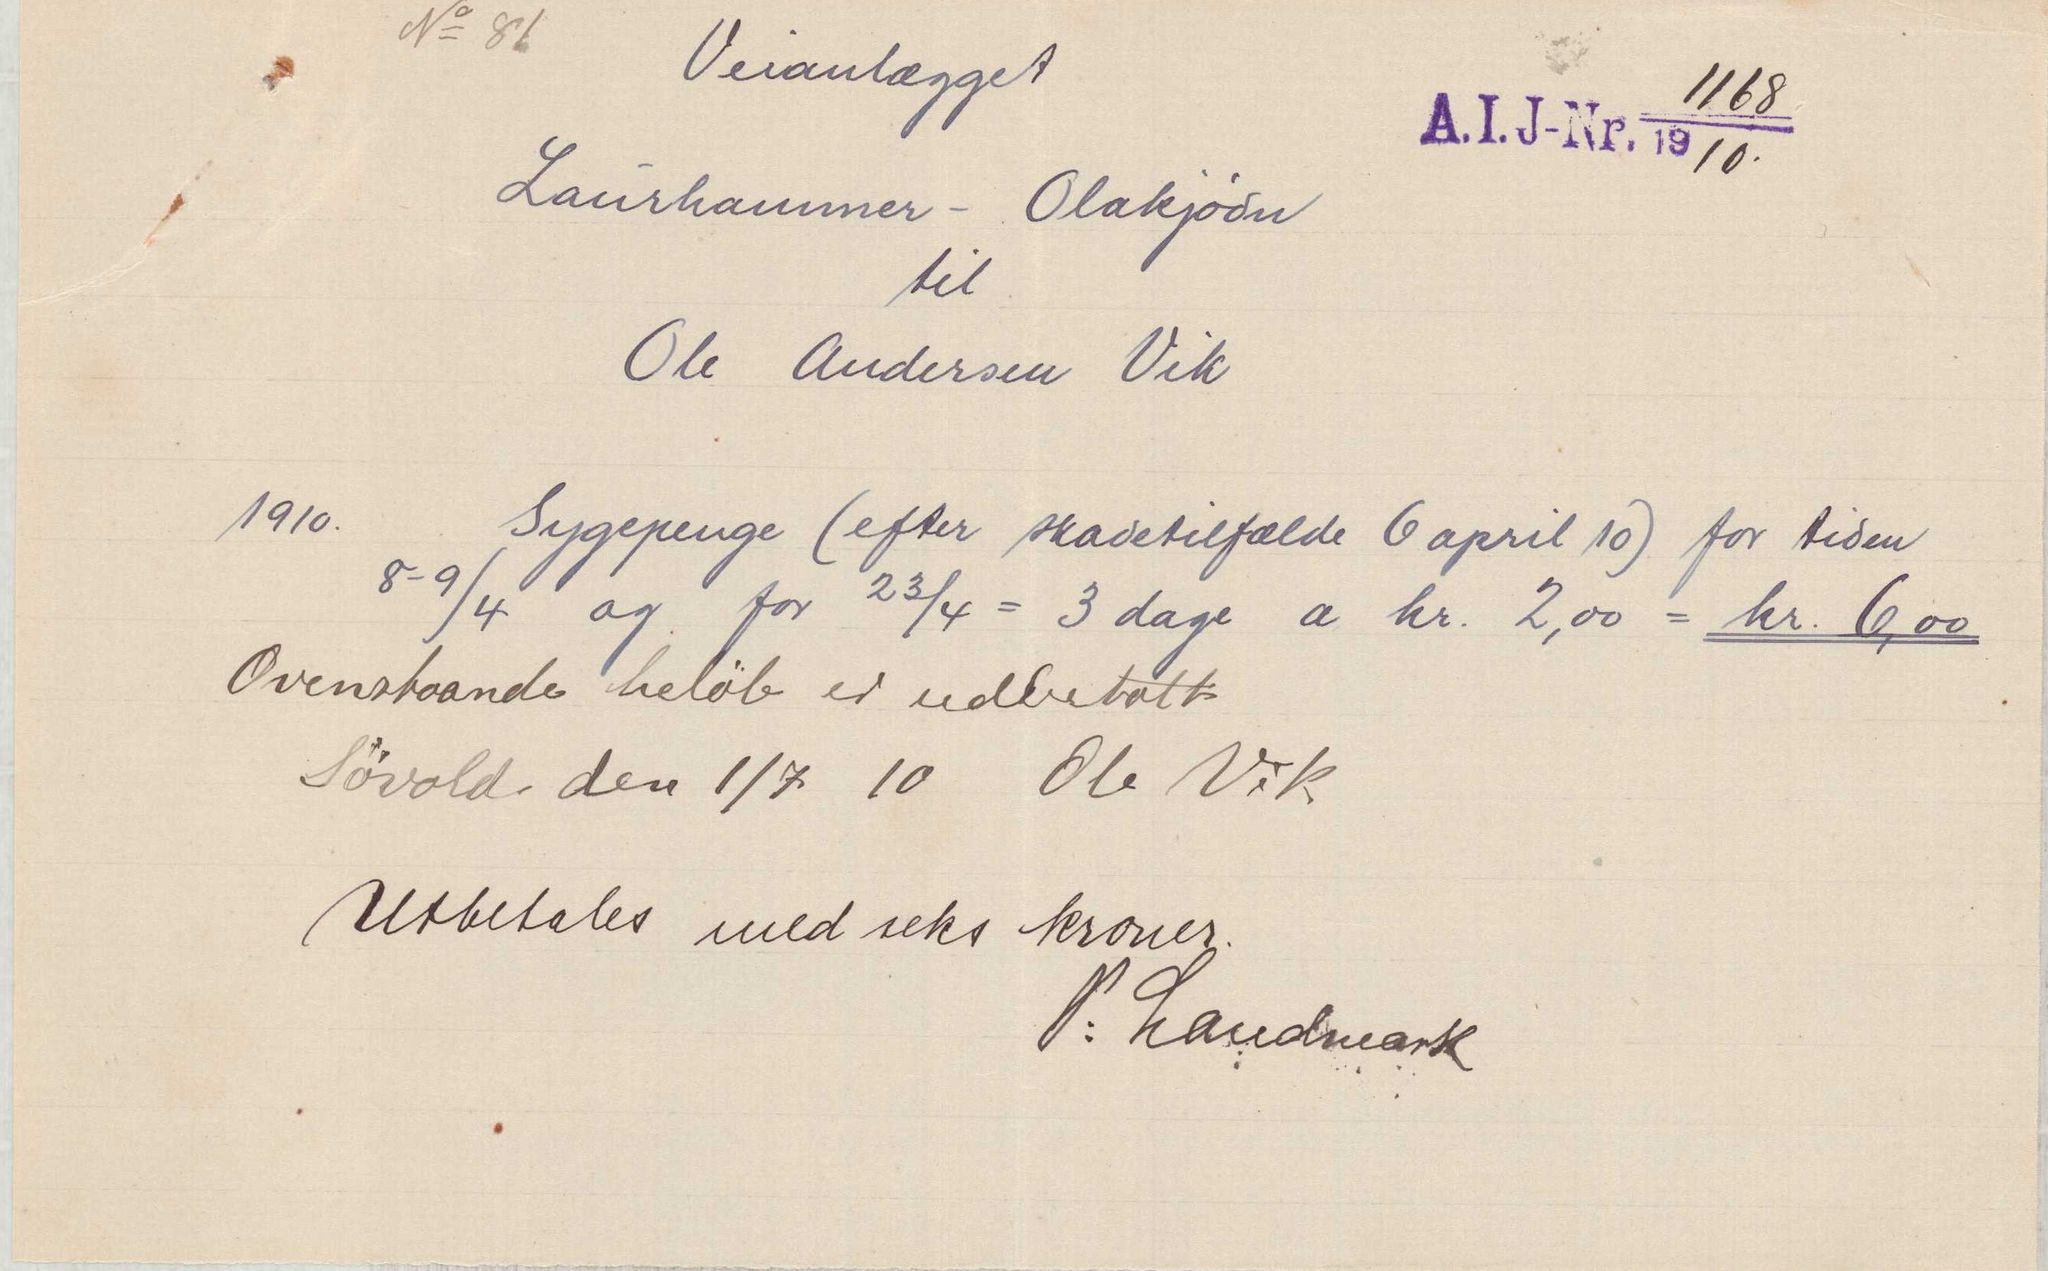 No 81
Veianlægget
A.I.J-Nr. 1168
1910.
Laurhammer - Olakjödn
til
Ole Andersen Vik
1910. Sygepenge (efter skadetilfælde 6 april 10) for tiden
8-9/4 og for 23/4 = 3 dage a kr. 2,00 = kr. 6,00
Ovenstaande belöb er udbetalt
Sövold den 1/7 10 Ole Vik
Utbetales med seks kroner.
P. Landmark